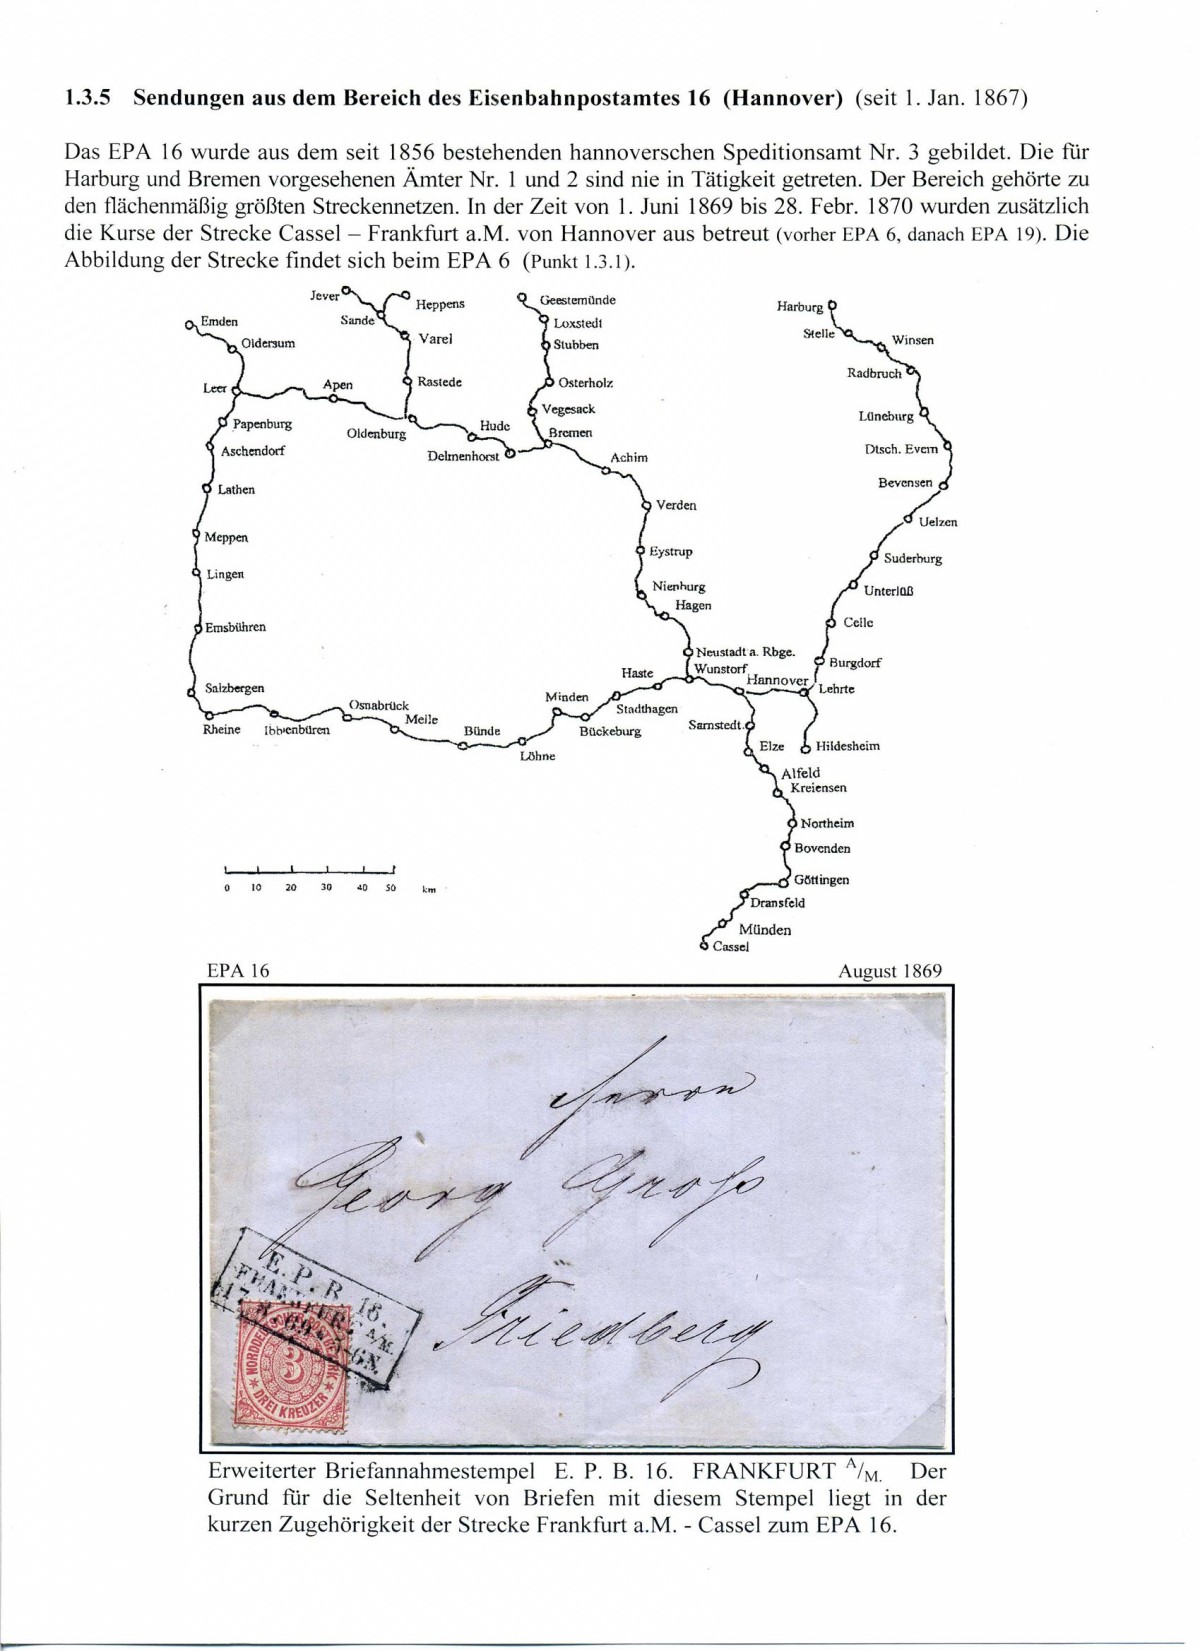 1.3.5 Sendungen aus dem Bereich des Eisenbahnpostamtes 16 (Hannover) (seit 1. Jan. 1867)
Das EPA 16 wurde aus dem seit 1856 bestehenden hannoverschen Speditionsamt Nr. 3 gebildet. Die für
Harburg und Bremen vorgesehenen Ämter Nr. 1 und 2 sind nie in Tätigkeit getreten. Der Bereich gehörte zu
den flächenmäßig größten Streckennetzen. In der Zeit von 1. Juni 1869 bis 28. Febr. 1870 wurden zusätzlich
die Kurse der Strecke Cassel – Frankfurt a.M. von Hannover aus betreut (vorher EPA 6, danach EPA 19). Die
Abbildung der Strecke findet sich beim EPA 6 (Punkt 1.3.1).
Jever
Heppens
Sande
Varel
Rastede
Geestemünde
Loxstedt
Stubben
Osterholz
Vegesack
Bremen
Harburg
Stelle
Winsen
Radbruch
Lüneburg
Dtsch. Evern
Bevensen
Uelzen
Suderburg
Unterlüß
Celle
Burgdorf
Lehrte
Hildesheim
Emden
Oldersum
Leer
Apen
Oldenburg
Hude
Delmenhorst
Papenburg
Aschendorf
Lathen
Meppen
Lingen
Emsbühren
Salzbergen
Rheine
Ibbenbüren
Osnabrück
Melle
Bünde
Löhne
Minden
Bückeburg
Stadthagen
Haste
Achim
Verden
Eystrup
Nienburg
Hagen
Neustadt a. Rbge.
Wunstorf
Hannover
Sarnstedt
Elze
Alfeld
Kreiensen
Northeim
Bovenden
Göttingen
Dransfeld
Münden
Cassel
0 10 20 30 40 50 km
EPA 16 August 1869
Herrn
Georg Groß
Friedberg
E. P. B. 16.
FRANKFURT A/M.
17. 8. 69. 5-6N.
NORDDEUTSCHER POSTBEZIRK
3
DREI KREUZER
Erweiterter Briefannahmestempel E. P. B. 16. FRANKFURT A/M. Der
Grund für die Seltenheit von Briefen mit diesem Stempel liegt in der
kurzen Zugehörigkeit der Strecke Frankfurt a.M. - Cassel zum EPA 16.